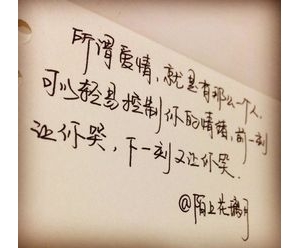 所谓爱情,就是有那么一个人.
可以轻易控制你的情绪,前一刻
让你哭,下一刻又让你笑.
@陌上花月